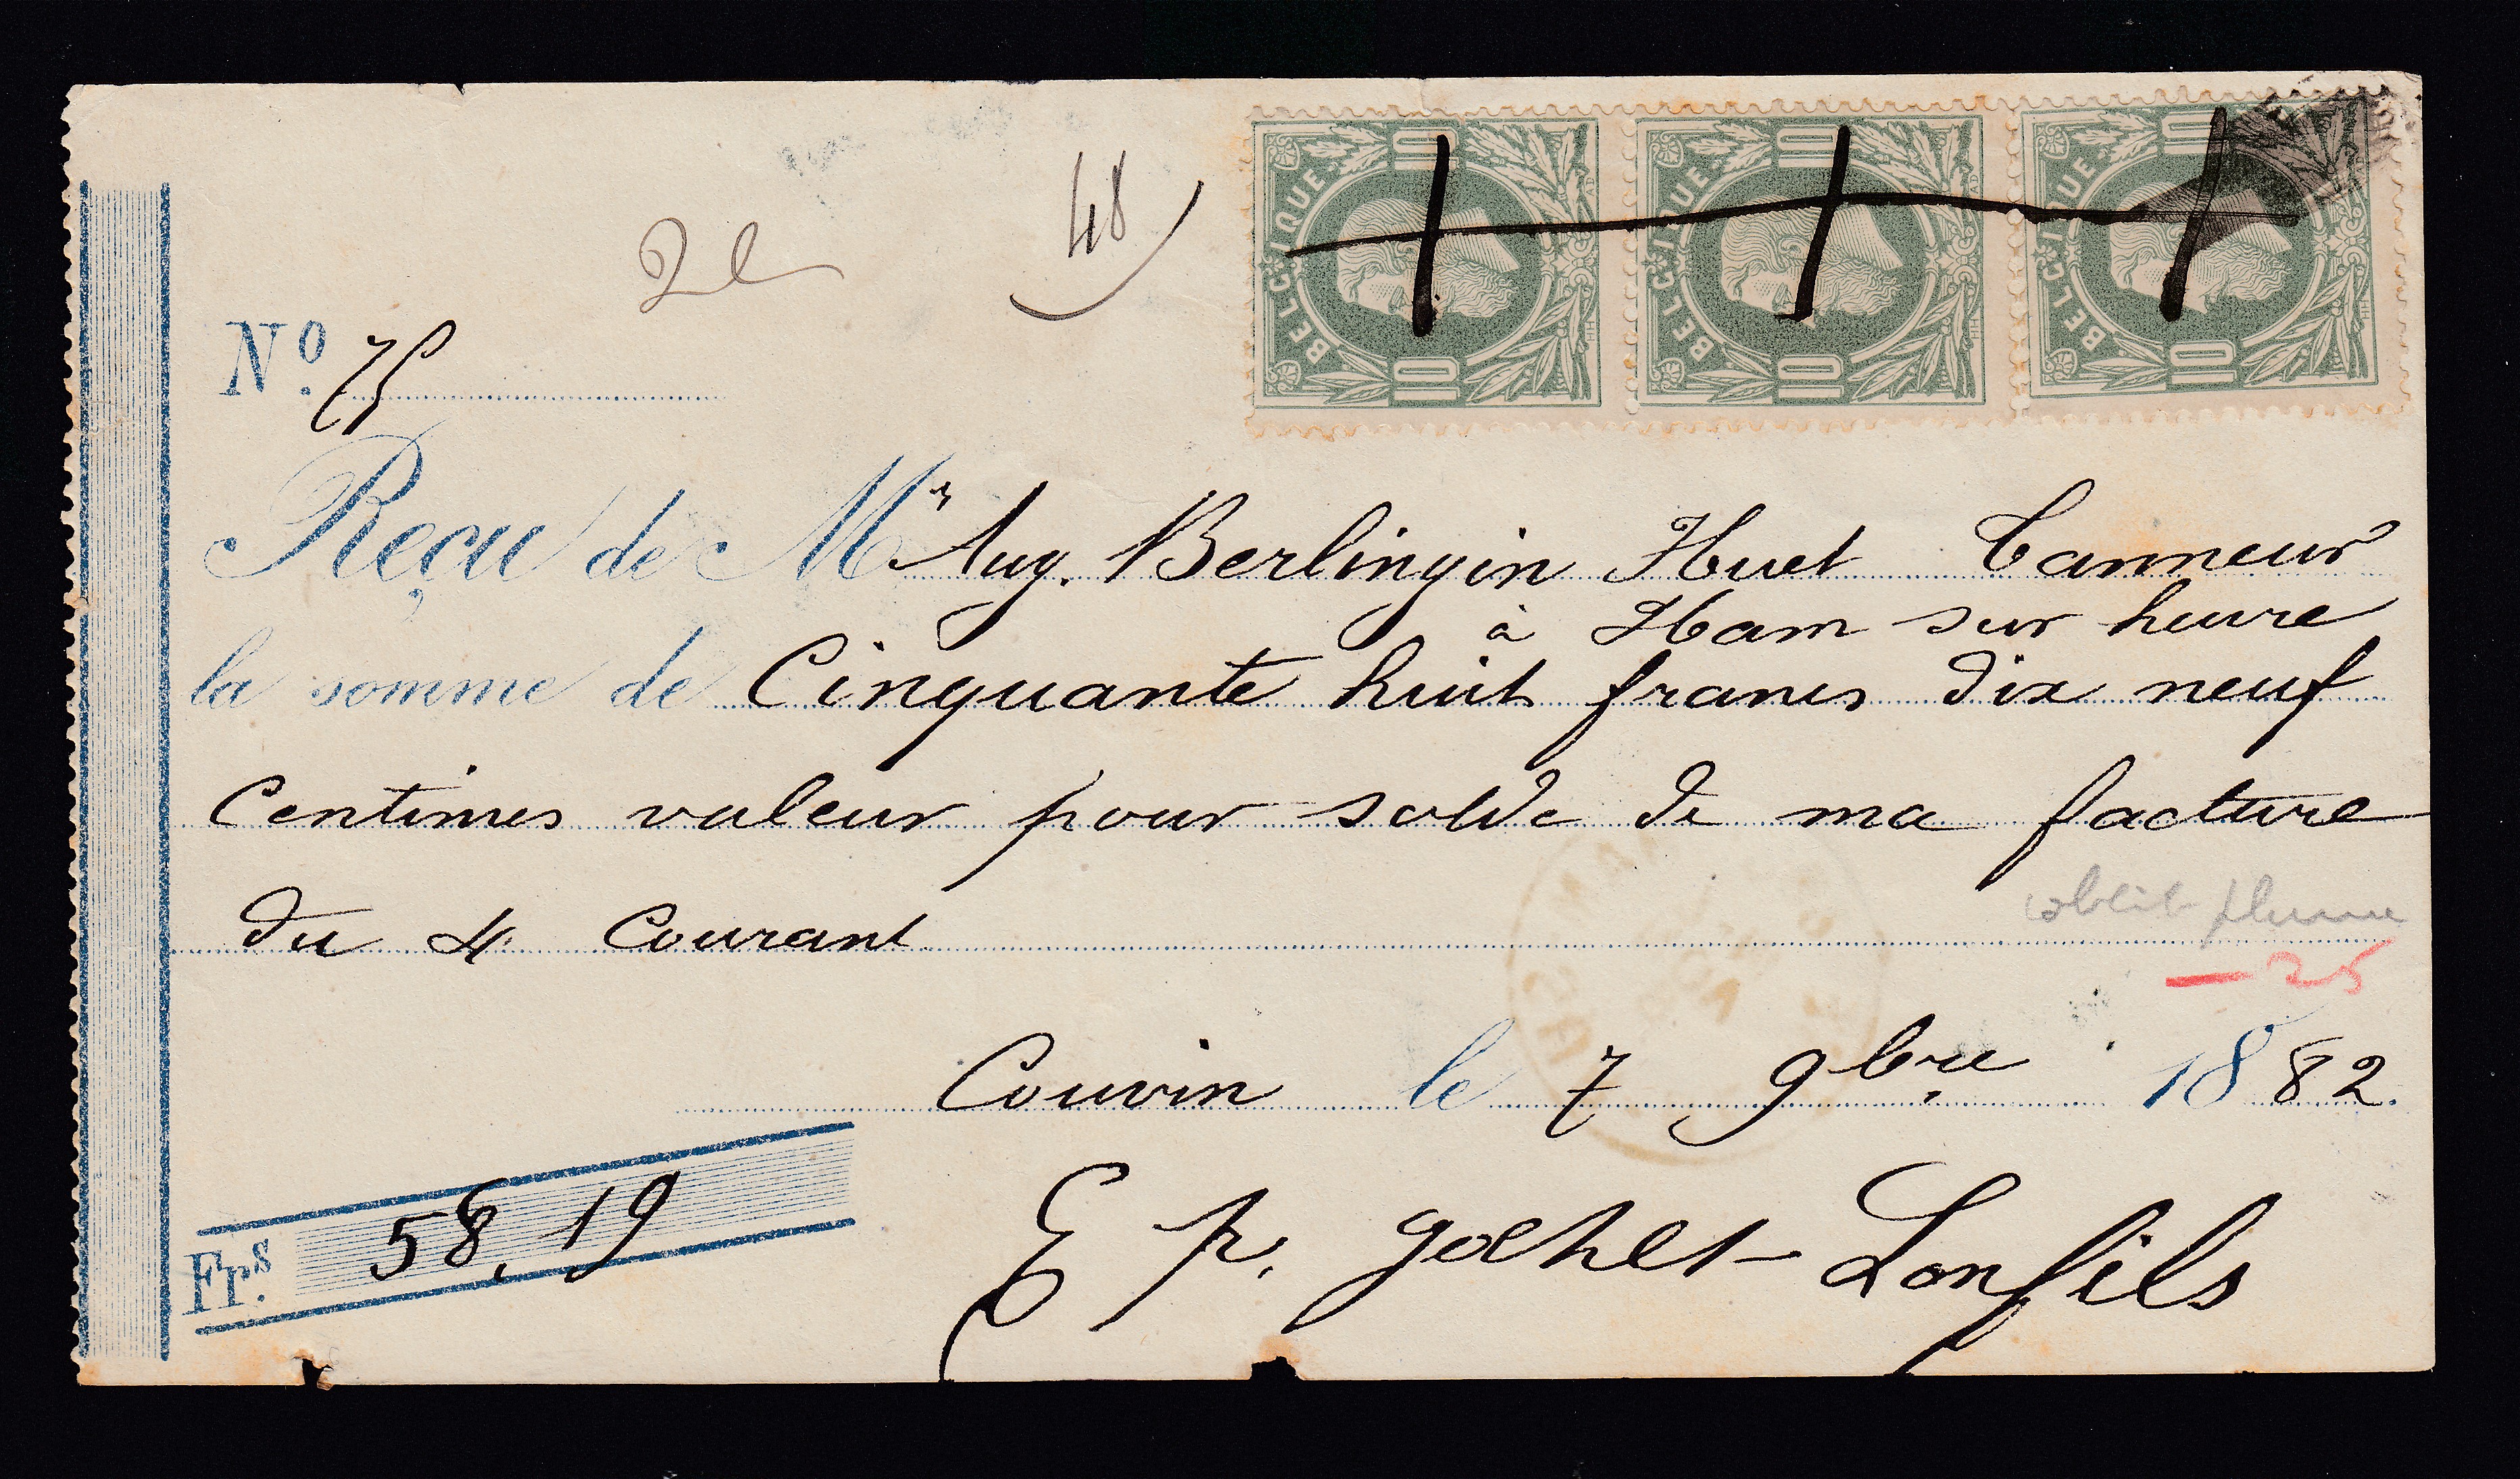 BELGIQUE 10 10
BELGIQUE 10 10
BELGIQUE 10 10
48
2e
Nº. 75
Reçu de Mr Aug. Berlingin Huet Tanneur
à Ham sur heure
la somme de Cinquante huit francs dix neuf
Centimes valeur pour solde de ma facture
du 4 Courant
oblit plume
— 25
Couvin le 7 9bre 1882.
Frs. 58,19
E p. Gochet-Lonfils